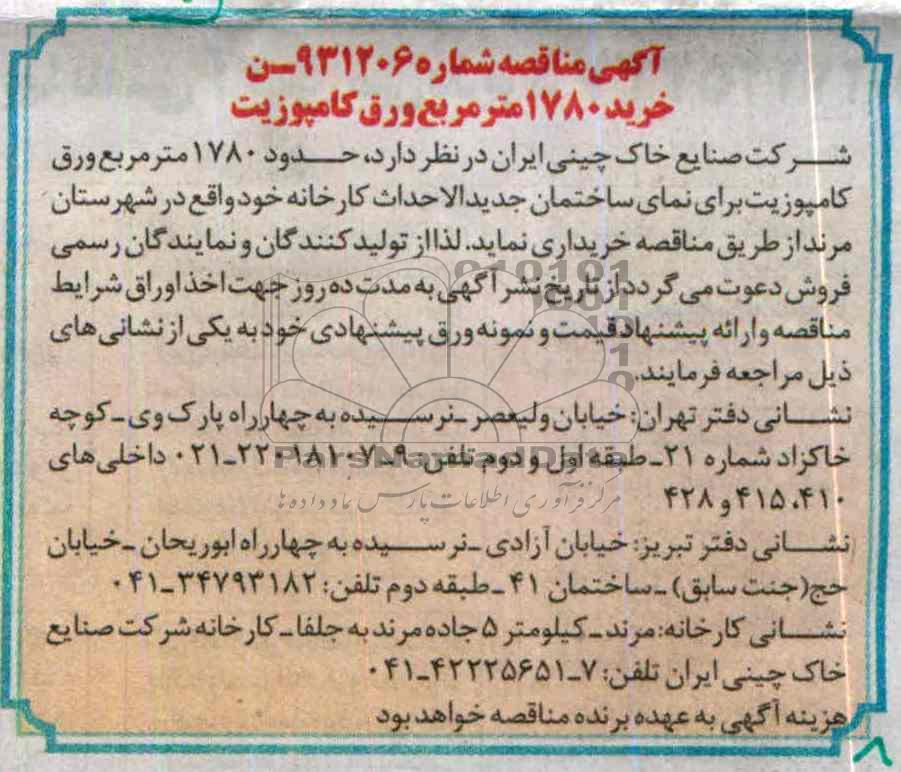 آگهی مناقصه شماره ۹۳۱۲۰۶-ن
خرید ۱۷۸۰ متر مربع ورق کامپوزیت
شرکت صنایع خاک چینی ایران در نظر دارد، حدود ۱۷۸۰ مترمربع ورق
کامپوزیت برای نمای ساختمان جدیدالاحداث کارخانه خود واقع در شهرستان
مرند از طریق مناقصه خریداری نماید. لذا از تولیدکنندگان و نمایندگان رسمی
فروش دعوت می گردد از تاریخ نشر آگهی به مدت ده روز جهت اخذ اوراق شرایط
مناقصه و ارائه پیشنهاد قیمت و نمونه ورق پیشنهادی خود به یکی از نشانی های
ذیل مراجعه فرمایند.
نشانی دفتر تهران: خیابان ولیعصر - نرسیده به چهارراه پارک وی - کوچه
خاکزاد شماره ۲۱ - طبقه اول و دوم تلفن: ۹-۲۲۰۱۸۱۰۷-۰۲۱ داخلی های
۴۱۰، ۴۱۵ و ۴۲۸
نشانی دفتر تبریز: خیابان آزادی - نرسیده به چهارراه ابوریحان - خیابان
حج (جنت سابق) - ساختمان ۴۱ - طبقه دوم تلفن: ۳۴۷۹۳۱۸۲-۰۴۱
نشانی کارخانه: مرند - کیلومتر ۵ جاده مرند به جلفا - کارخانه شرکت صنایع
خاک چینی ایران تلفن: ۷-۴۲۲۲۵۶۵۱-۰۴۱
هزینه آگهی به عهده برنده مناقصه خواهد بود
ParsNamadData
مرکز فرآوری اطلاعات پارس نماد داده ها
۸